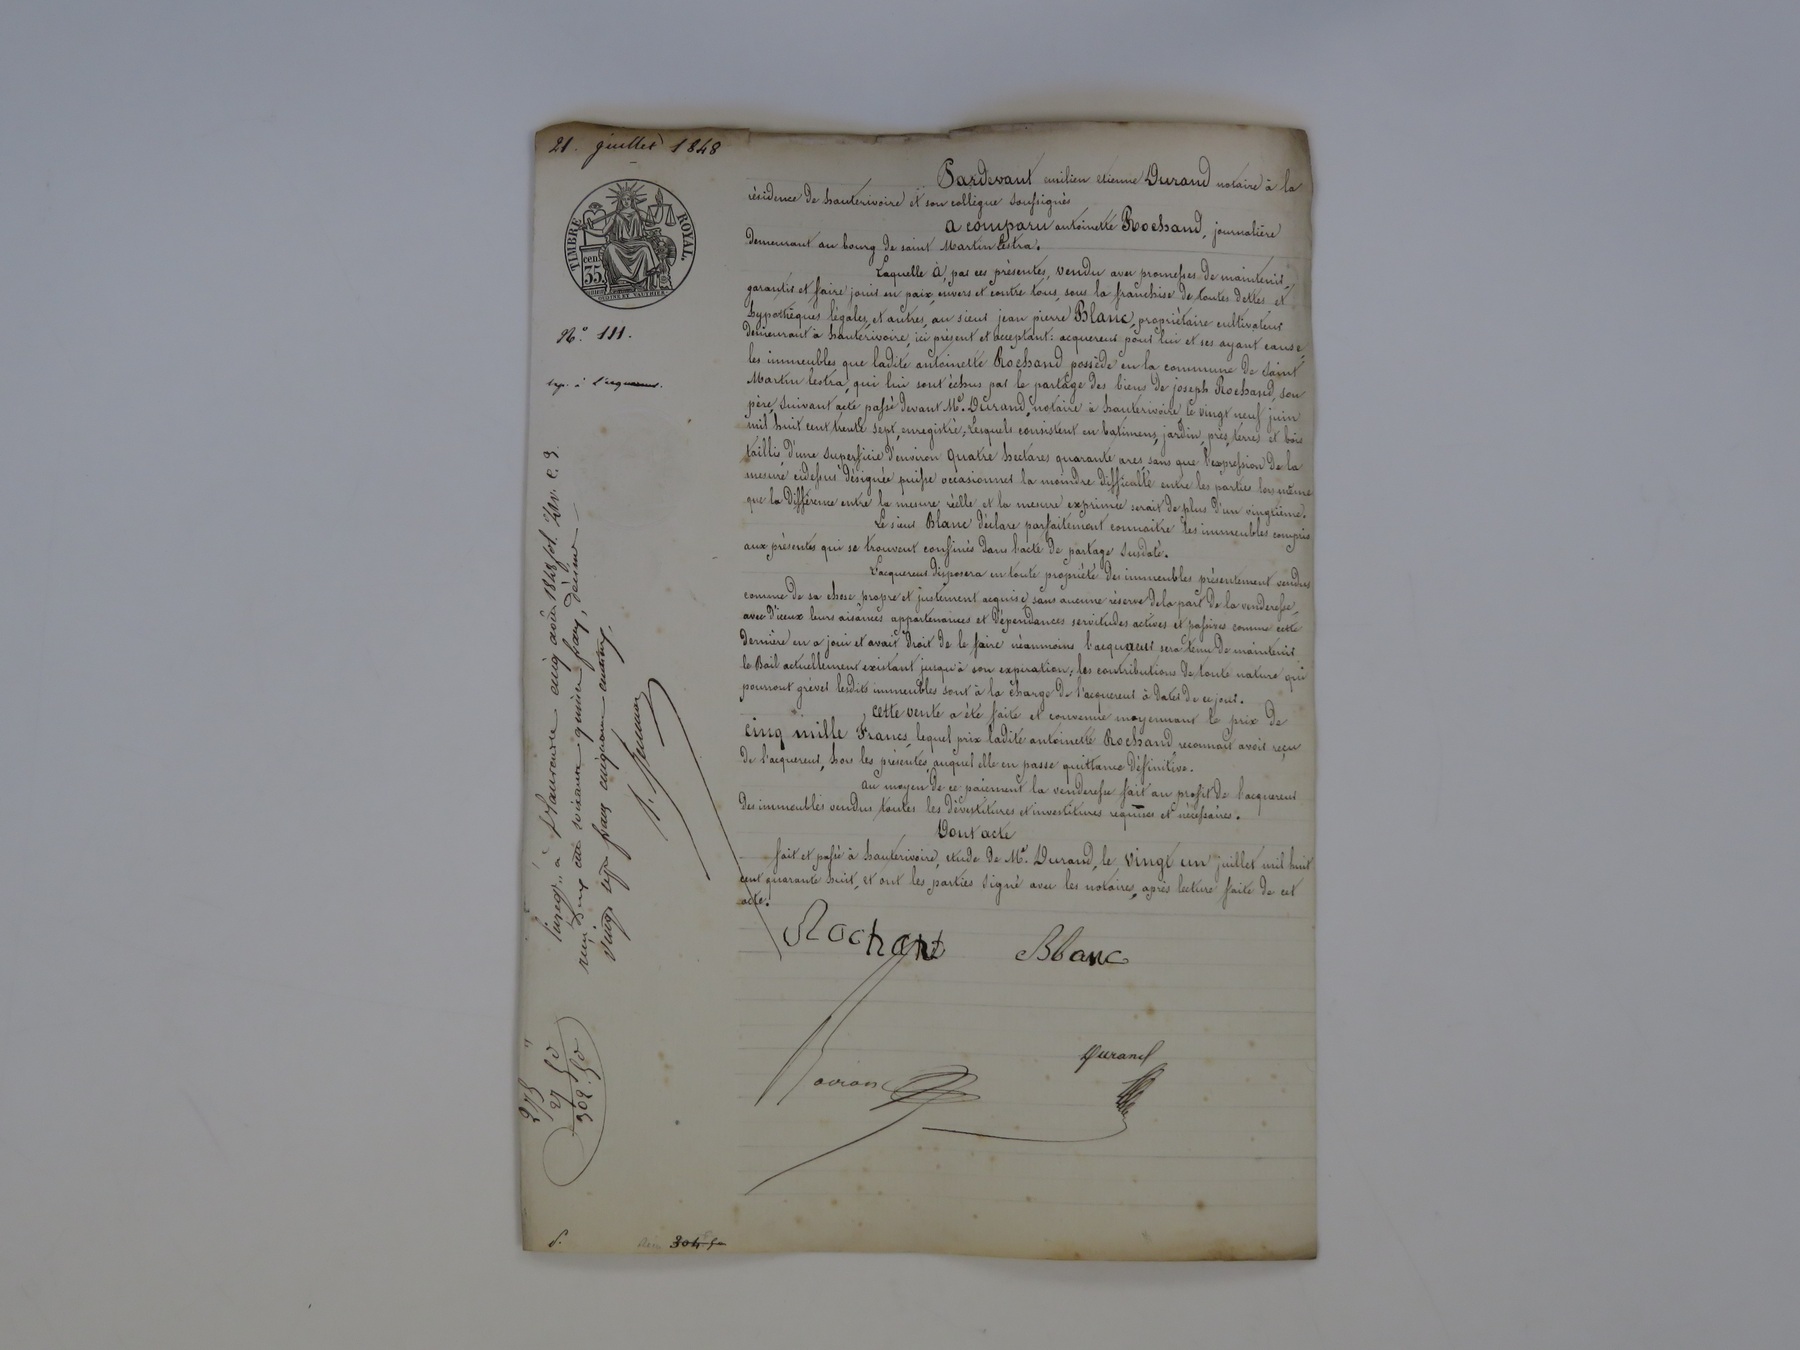 21. juillet 1848
TIMBRE ROYAL.
cen.
35
N.° 111.
exp. à l'acquereur.
Pardevant emilien etienne Durand notaire à la
résidence de hauterivoire et son collègue soussignés
a comparu antoinette Rochand, journalière
demeurant au bourg de saint Martin Lestra.
Laquelle a, par ces présentes, vendu avec promesses de maintenir,
garantir et faire jouir en paix, envers et contre tous, sous la franchise de toutes dettes et
hypothèques légales, et autres, au sieur jean pierre Blanc, propriétaire cultivateur
demeurant à hauterivoire, ici présent et acceptant: acquereur pour lui et ses ayant cause,
les immeubles que ladite antoinette Rochand possède en la commune de saint
Martin lestra, qui lui sont échus par le partage des biens de joseph Rochand, son
père, suivant acte passé devant M.e Durand, notaire à hauterivoire, le vingt neuf juin
mil huit cent trente sept, enregistré; Lesquels consistent en batimens, jardin, prés, terres et bois
taillis, d'une superficie d'environ quatre hectares quarante ares sans que l'expression de la
mesure cidessus désignée puisse occasionner la moindre difficulté entre les parties lors même
que la différence entre la mesure réelle et la mesure exprimée serait de plus d'un vingtième.
Le sieur Blanc déclare parfaitement connaitre les immeubles compris
aux présentes qui se trouvent confinés dans l'acte de partage susdaté.
L'acquereur disposera en toute propriété des immeubles présentement vendus
comme de sa chose propre et justement acquise, sans aucune réserve de la part de la venderesse,
avec d'iceux leurs aisances appartenances et dépendances servitudes actives et passives comme cette
dernière en a joui et avait droit de le faire néanmoins l'acquereur sera tenu de maintenir
le Bail actuellement existant jusqu'à son expiration; les contributions de toute nature qui
pourront grèver lesdits immeubles sont à la charge de l'acquereur à dater de ce jour.
Cette vente a été faite et convenue moyennant le prix de
cinq mille Francs, lequel prix ladite antoinette Rochand reconnait avoir reçu
de l'acquereur, hors les présentes, auquel elle en passe quittance définitive.
au moyen de ce paiement la venderesse fait au profit de l'acquereur
des immeubles vendus toutes les dévestitures et investitures requises et nécessaires.
Dont acte
fait et passé à hauterivoire, etude de M.e Durand, le vingt un juillet mil huit
cent quarante huit, et ont les parties signé avec les notaires, après lecture faite de cet
acte.
Rochand Blanc
Durand
Enreg.é à S.t Laurent cinq août 1848
reçu deux cent soixante quinze francs, décime
vingt sept francs cinquante centimes.
275 "
27 50
302. 50